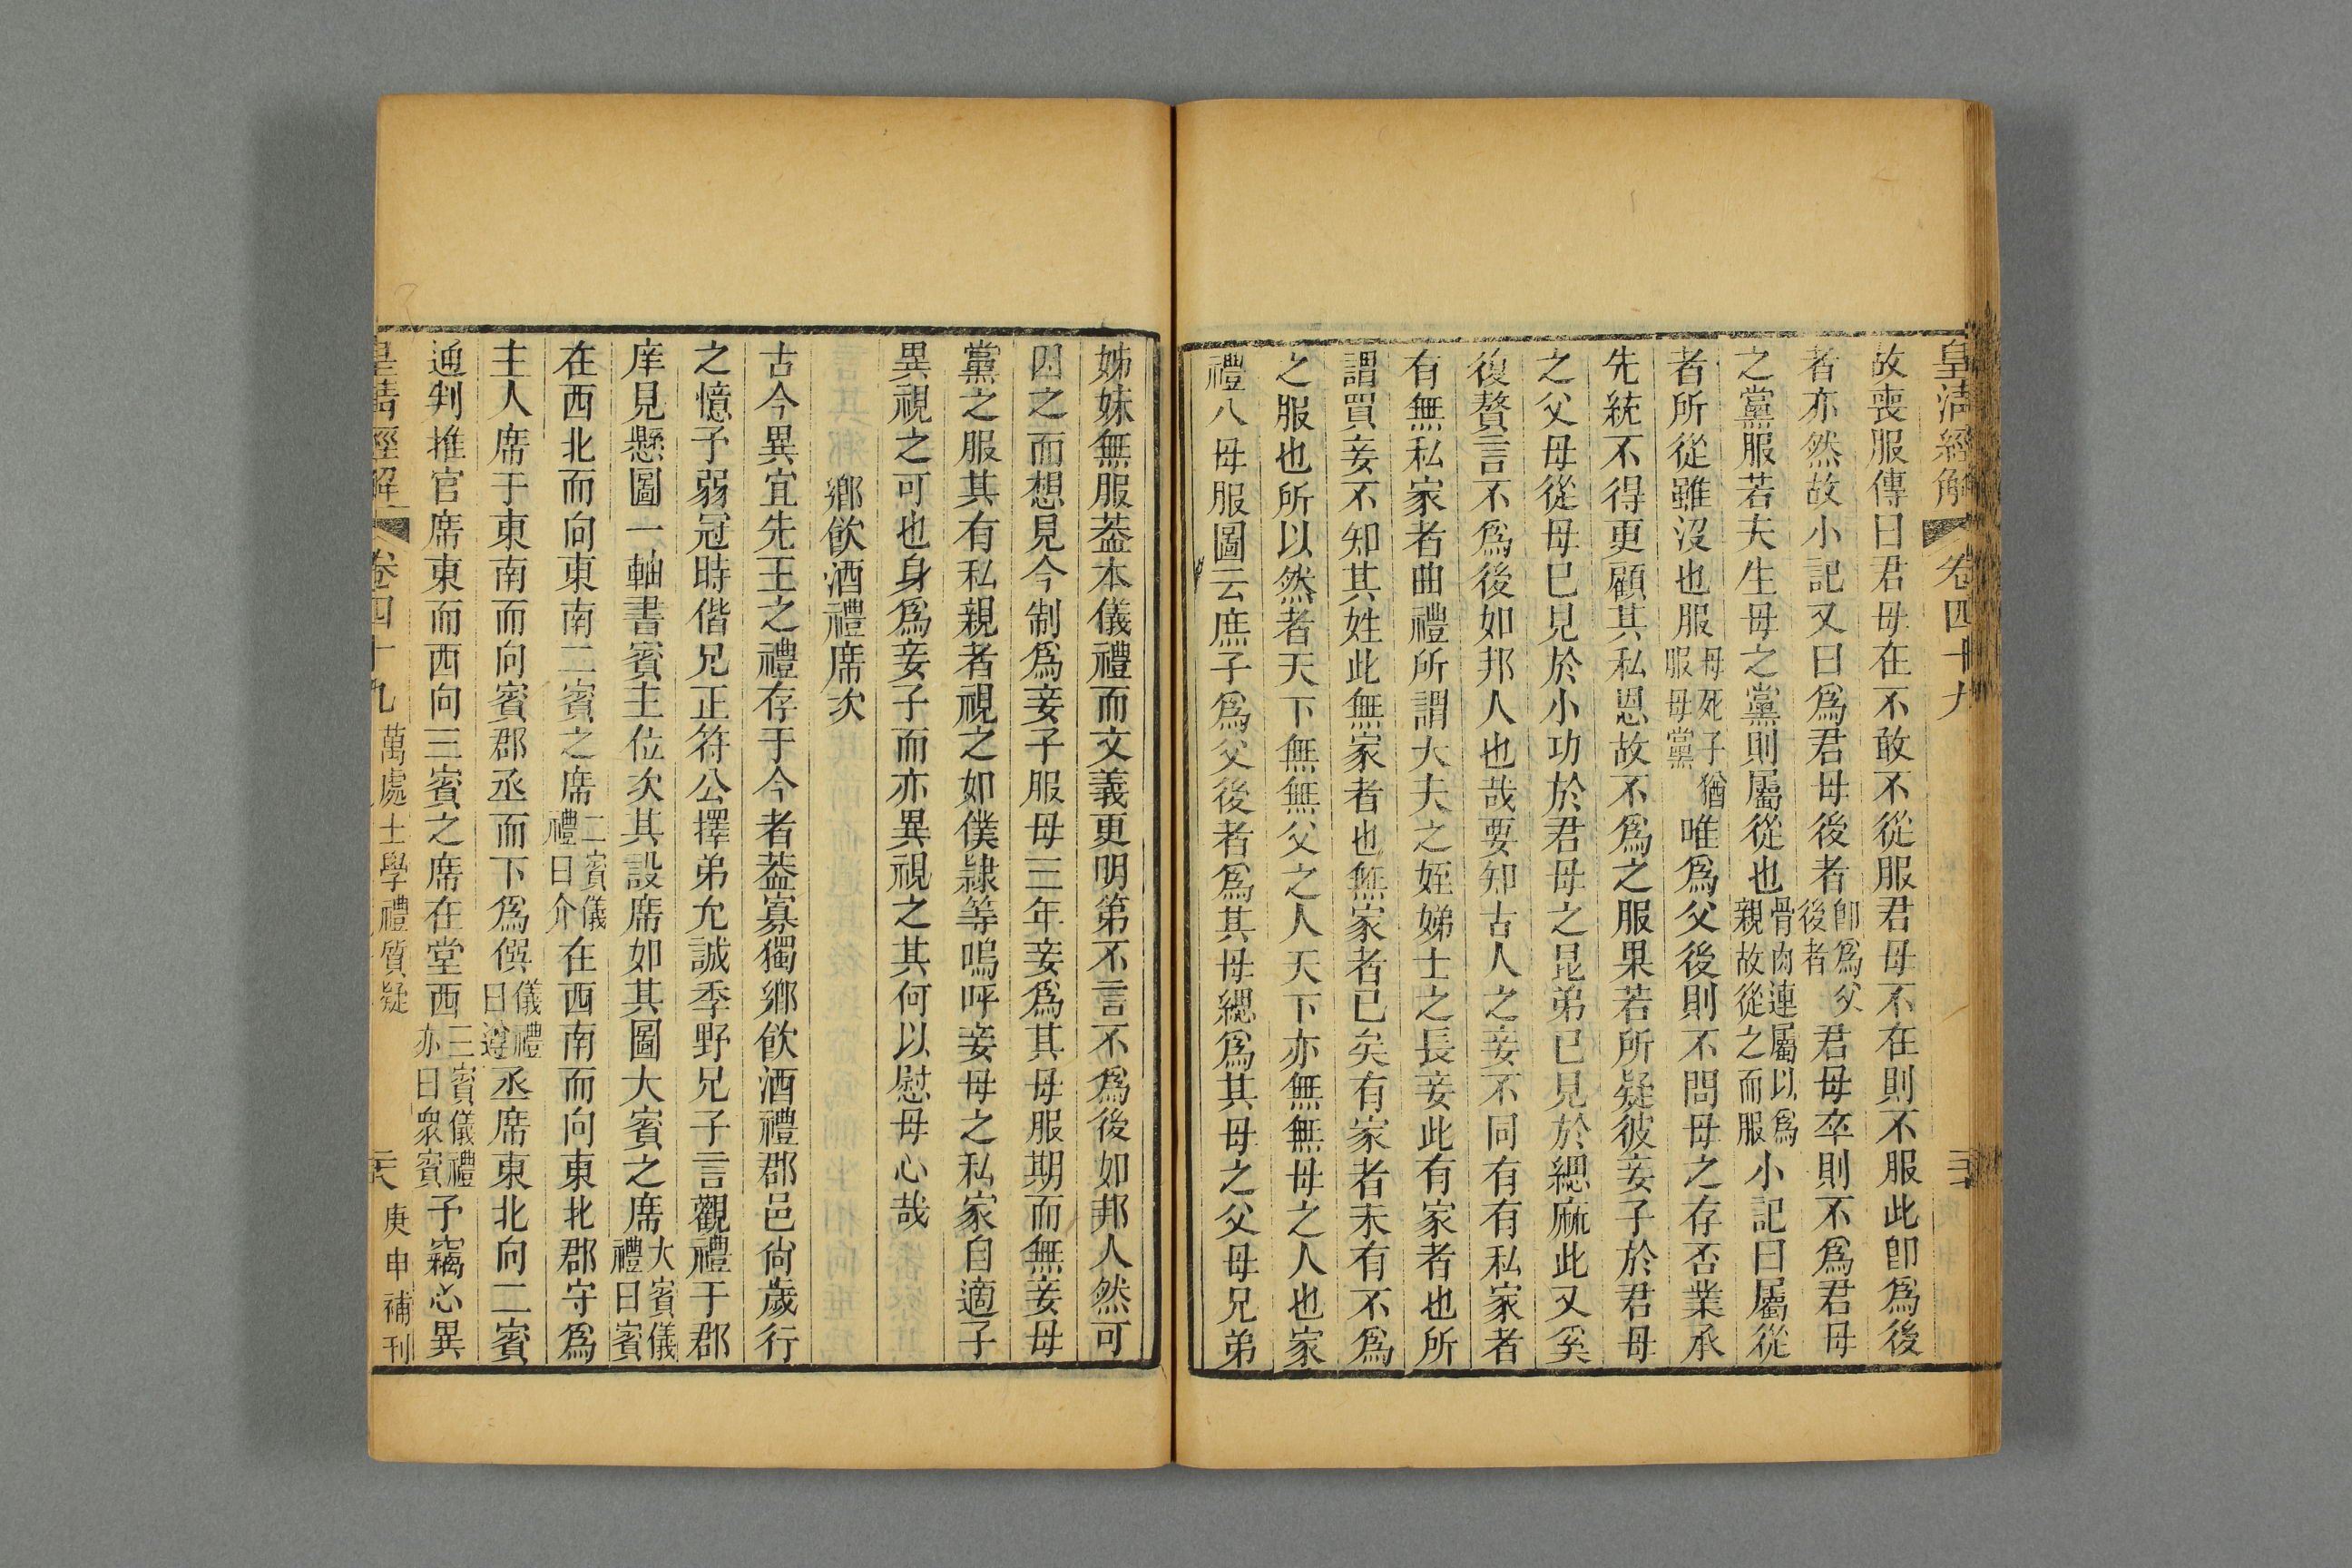 皇清經解 卷四十九 三
故喪服傳曰君母在不敢不從服君母不在則不服此卽爲後
者亦然故小記又曰爲君母後者卽爲父後者君母卒則不爲君母
之黨服若夫生母之黨則屬從也骨肉連屬以爲親故從之而服小記曰屬從
者所從雖沒也服母死子猶服母黨唯爲父後則不問母之存否業承
先統不得更顧其私恩故不爲之服果若所疑彼妾子於君母
之父母從母已見於小功於君母之昆弟已見於緦麻此又奚
復贅言不爲後如邦人也哉要知古人之妾不同有有私家者
有無私家者曲禮所謂大夫之姪娣士之長妾此有家者也所
謂買妾不知其姓此無家者也無家者已矣有家者未有不爲
之服也所以然者天下無無父之人天下亦無無母之人也家
禮八母服圖云庶子爲父後者爲其母緦爲其母之父母兄弟
姊妹無服葢本儀禮而文義更明第不言不爲後如邦人然可
因之而想見今制爲妾子服母三年妾爲其母服期而無妾母
黨之服其有私親者視之如僕隸等嗚呼妾母之私家自適子
異視之可也身爲妾子而亦異視之其何以慰母心哉
鄉飲酒禮席次
古今異宜先王之禮存于今者葢寡獨鄉飲酒禮郡邑尙歲行
之憶予弱冠時偕兄正符公擇弟允誠季野兄子言觀禮于郡
庠見懸圖一軸書賓主位次其設席如其圖大賓之席大賓儀禮曰賓
在西北而向東南二賓之席二賓儀禮曰介在西南而向東北郡守爲
主人席于東南而向賓郡丞而下爲僎儀禮曰遵丞席東北向二賓
通判推官席東而西向三賓之席在堂西三賓儀禮亦曰衆賓予竊心異
皇淸經解 卷四十九 萬處士學禮質疑 庚申補刊